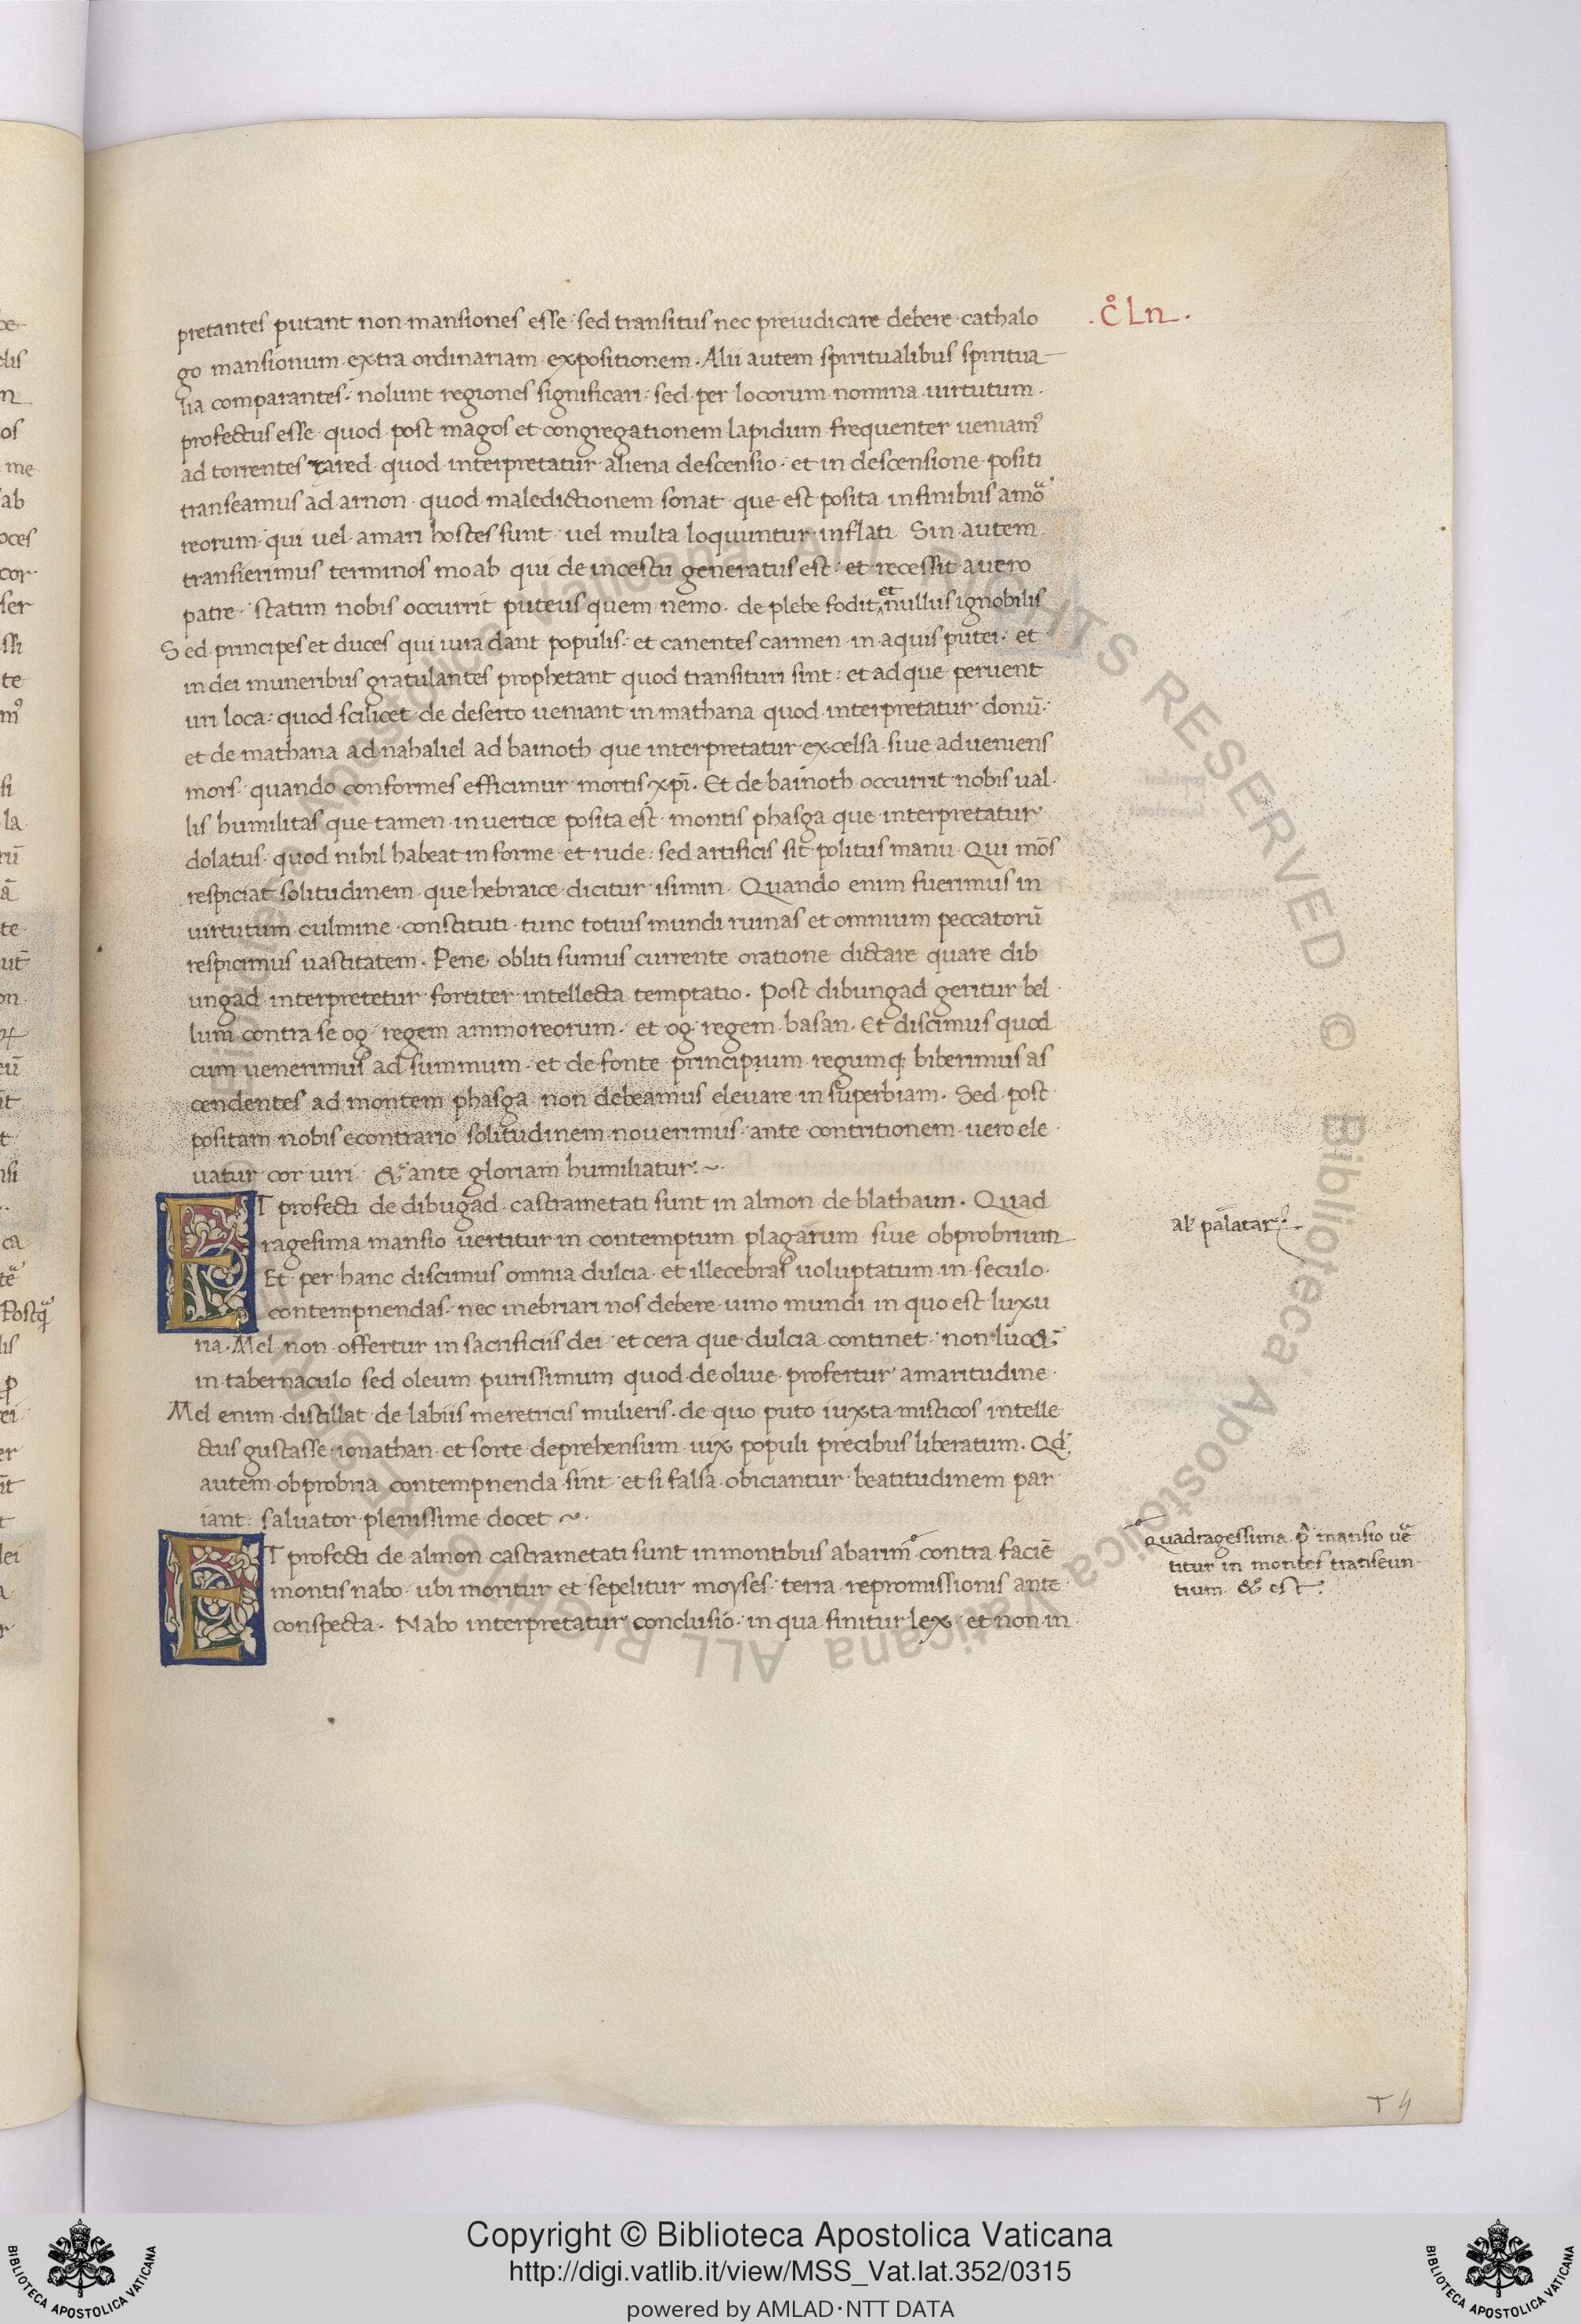 .Cͦ Ln.
pretantes putant non mansiones esse· sed transitus nec preiudicare debere cathalo
go mansionum extra ordinariam expositionem. Alii autem spiritualibus spiritua
lia comparantes· nolunt regiones significari· sed per locorum nomina uirtutum·
profectus esse· quod post magos et congregationem lapidum frequenter ueniamꝰ
ad torrentes zared· quod interpretatur aliena descensio· et in descensione positi
transeamus ad arnon· quod maledictionem sonat· que est posita in finibus amo
reorum· qui uel amari hostes sunt· uel multa loquuntur inflati. Sin autem
transierimus terminos moab qui de incestu generatus est· et recessit a uero
patre· statim nobis occurrit puteus quem nemo· de plebe fodit et nullus ignobilis
Sed principes et duces qui iura dant populis· et canentes carmen in aquis putei· et
in dei muneribus gratulantes prophetant quod transituri sint· et ad que peruent
uri loca· quod scilicet de deserto ueniant in mathana quod interpretatur donū·
et de mathana ad nahaliel ad bainoth que interpretatur excelsa siue adueniens
mors· quando conformes efficimur mortis xp̄i. Et de bainoth occurrit nobis ual
lis humilitas que tamen in uertice posita est montis phasga que interpretatur
dolatus· quod nihil habeat informe et rude· sed artificis sit politus manu. Qui mōs
respiciat solitudinem que hebraice dicitur isimin. Quando enim fuerimus in
uirtutum culmine constituti· tunc totius mundi ruinas et omnium peccatorū
respicimus uastitatem. Pene obliti sumus currente oratione dictare quare dib
ungad interpretetur fortiter intellecta temptatio. Post dibungad geritur bel
lum contra se og regem ammoreorum· et og regem basan. Et discimus quod
cum uenerimus ad summum· et de fonte principium regumqꝫ biberimus as
cendentes ad montem phasga non debeamus eleuare in superbiam. Sed post
positam nobis econtrario solitudinem nouerimus· ante contritionem uero ele
uatur cor uiri & ante gloriam humiliatur:~
ET profecti de dibugad castrametati sunt in almon deblathaim. Quad
ragesima mansio uertitur in contemptum plagarum siue obprobrium
al' palatar
Et per hanc discimus omnia dulcia et illecebras uoluptatum in seculo
contempnendas· nec inebriari nos debere uino mundi in quo est luxu
ria. Mel non offertur in sacrificiis dei et cera que dulcia continet non luc&
in tabernaculo sed oleum purissimum quod de oliue profertur amaritudine·
Mel enim distillat de labiis meretricis mulieris· de quo puto iuxta misticos intelle
ctus gustasse ionathan et sorte deprehensum uix populi precibus liberatum. Qd
autem obprobria contempnenda sint· et si falsa obiciantur beatitudinem par
iant· saluator plenissime docet ~
ET profecti de almon castrametati sunt in montibus abarim contra faciē
montis nabo· ubi moritur et sepelitur moyses terra repromissionis ante
conspecta. Nabo interpretatur conclusio· in qua finitur lex· et non in
Quadragessima pͣ mansio ue
titur in montes transeun
tium & est:
T 4
Copyright © Biblioteca Apostolica Vaticana
http://digi.vatlib.it/view/MSS_Vat.lat.352/0315
powered by AMLAD·NTT DATA
BIBLIOTECA APOSTOLICA VATICANA
BIBLIOTECA APOSTOLICA VATICANA